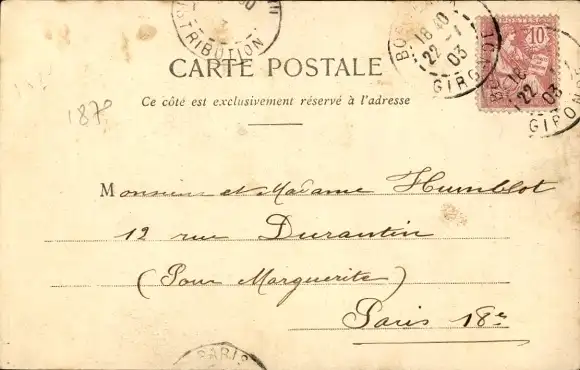 DISTRIBUTION
BORDEAUX
18 40
22 - 1
03
GIRONDE
POSTES
10
18
22
03
GIRONDE
CARTE POSTALE
Ce côté est exclusivement réservé à l'adresse
1870
Monsieur et Madame Humblot
12 rue Durantin
(Pour Marguerite)
Paris 18e
PARIS